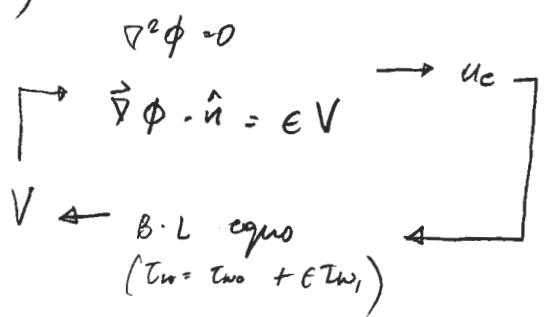 ∇²ϕ = 0
∇⃗ϕ · n̂ = ϵV → u_e
V ← B·L equo
(τ_w = τ_w₀ + ϵτ_w₁)